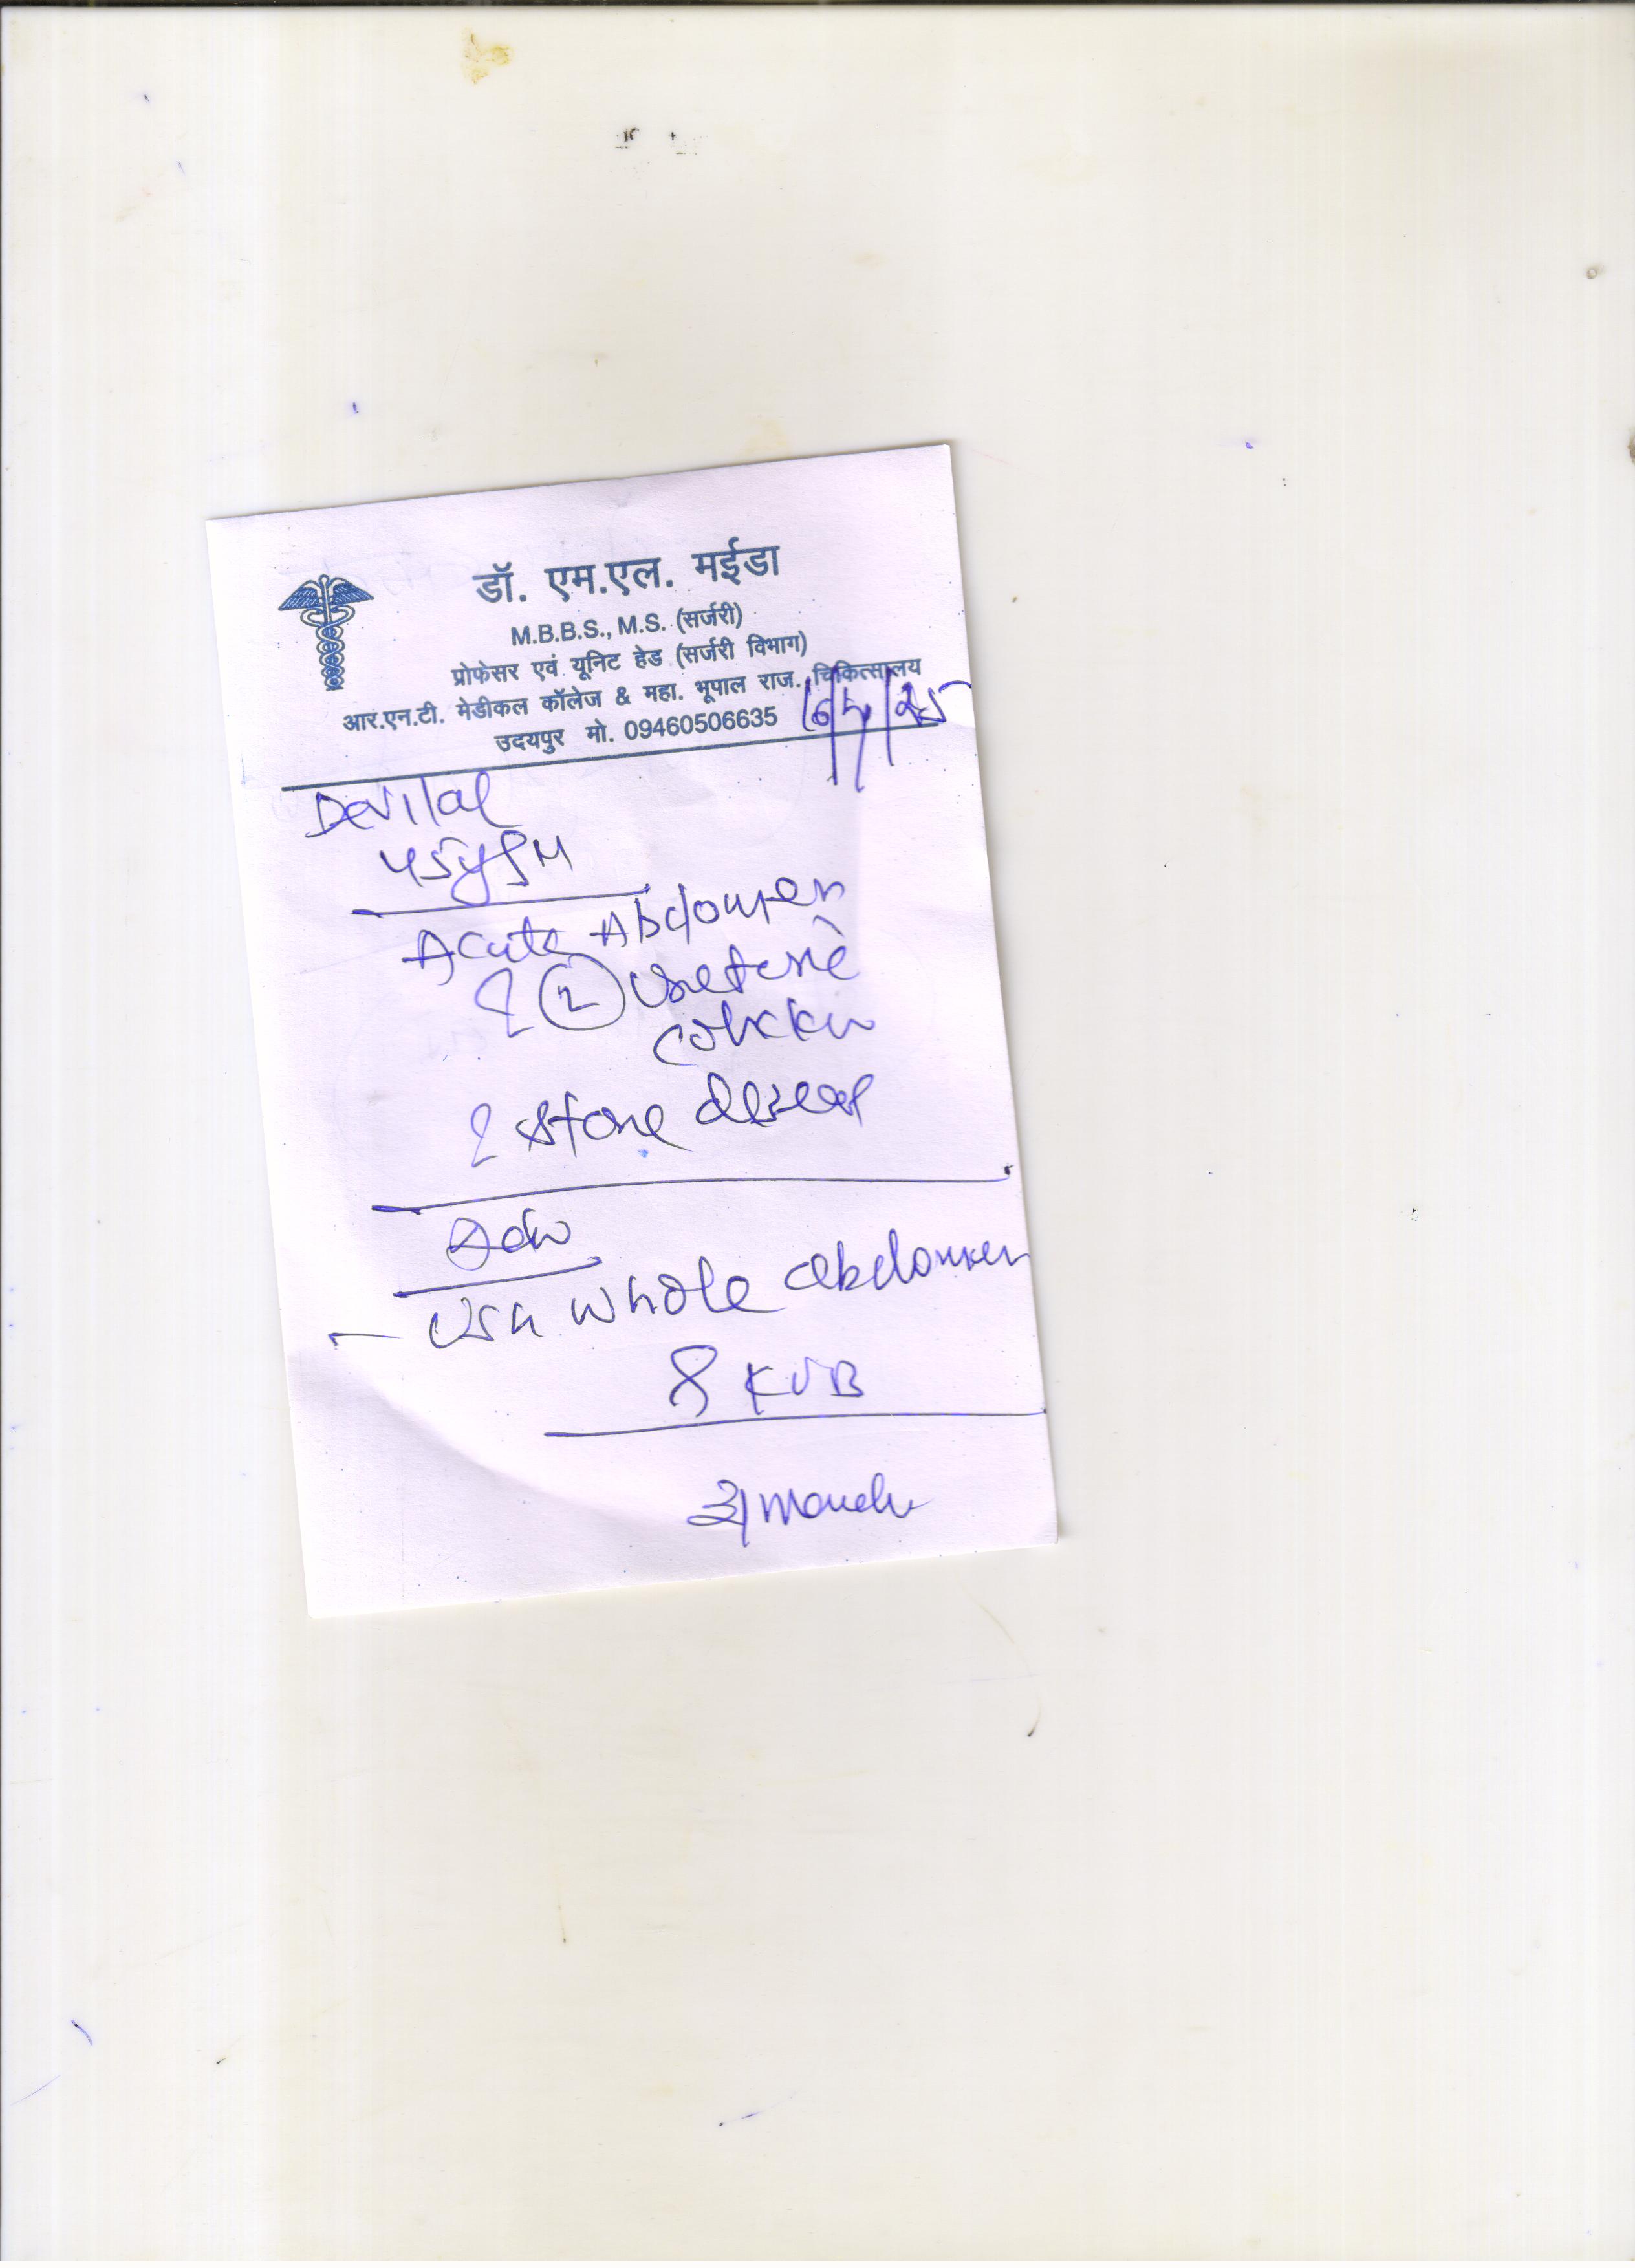 डॉ. एम.एल. मईडा
M.B.B.S., M.S. (सर्जरी)
प्रोफेसर एवं यूनिट हेड (सर्जरी विभाग)
आर.एन.टी. मेडीकल कॉलेज & महा. भूपाल राज. चिकित्सालय
उदयपुर मो. 09460506635
Devilal
45y M
Acute Abdomen
? Ureteric
? Stone
Adv
- USG whole abdomen
& KUB